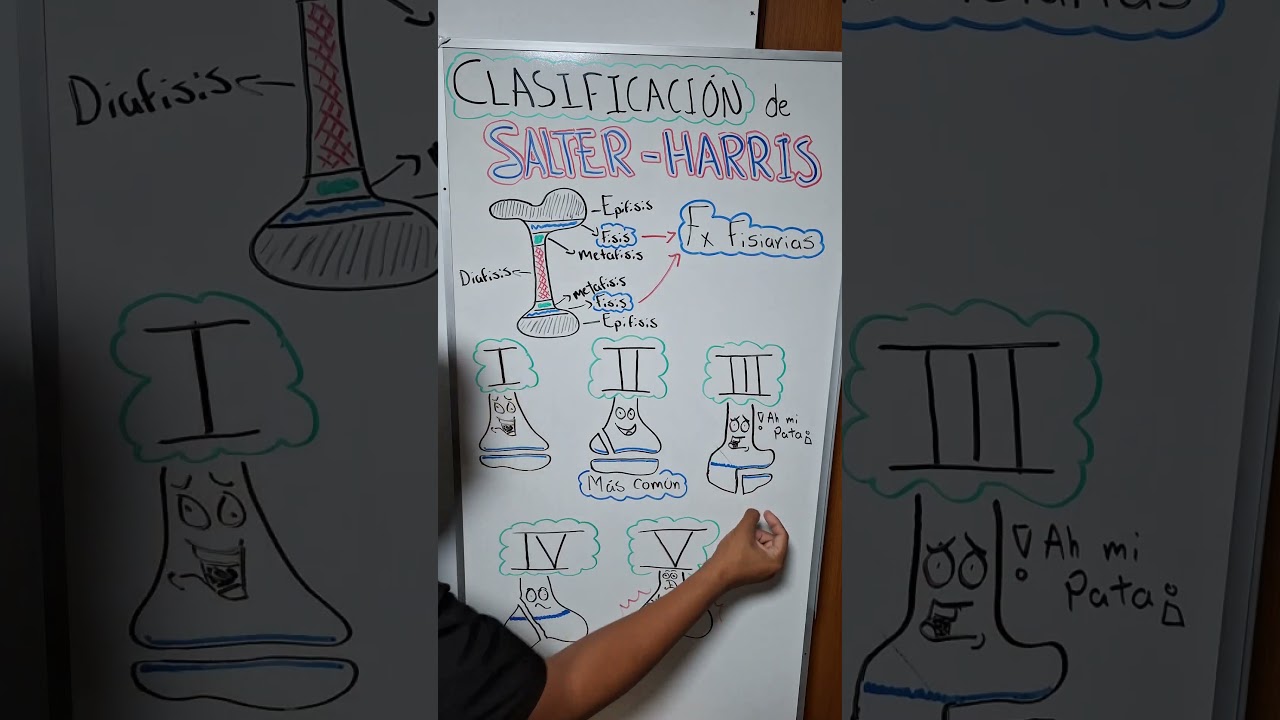 CLASIFICACIÓN de
SALTER-HARRIS
Epifisis
Fisis
metafisis
Fx Fisiarias
Diafisis
metafisis
Fisis
Epifisis
I
II
III
¡Ah mi
Pata!
Más común
IV
V
Diafisis
I
III
¡Ah mi
Pata!